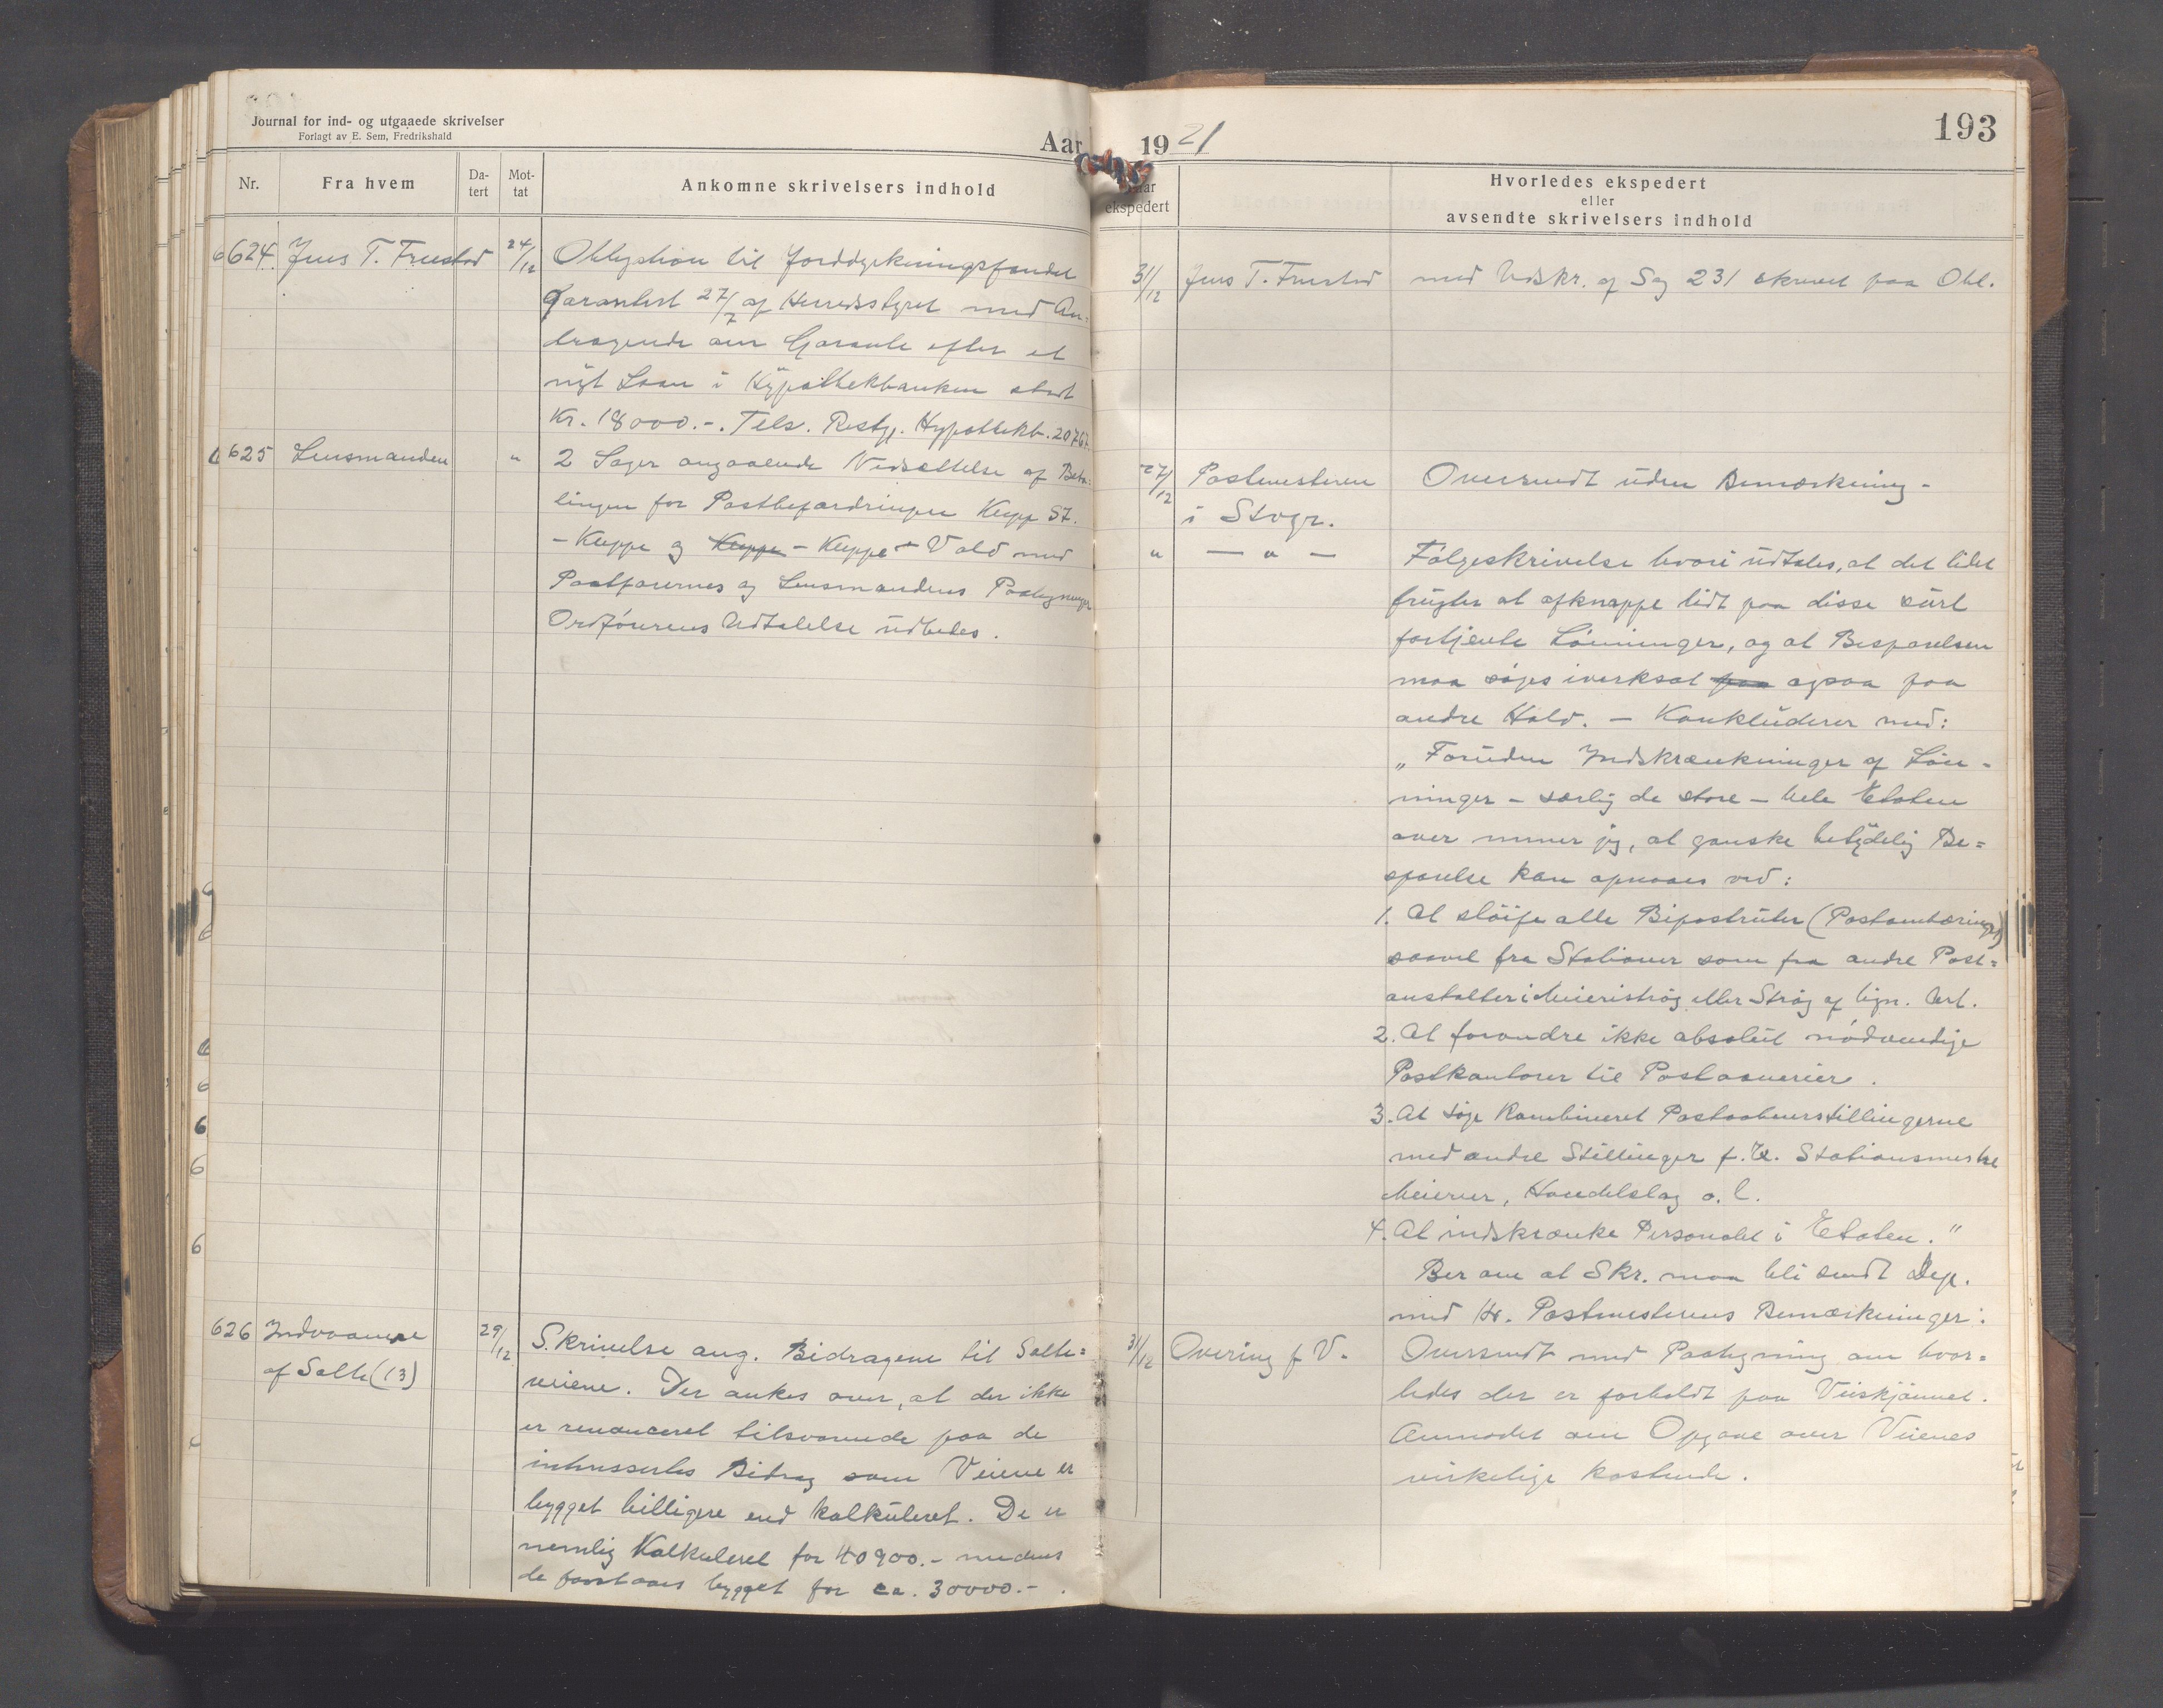 Journal for ind- og utgaaede skrivelser
Forlagt av E. Sem, Fredrikshald
Aar
Nr.
Fra hvem
Da-
tert
Mot-
tat
Ankomne skrivelsers indhold
624. Jens T. Fruestad 24/12 Obligation til Jorddyrkningsfondet
garantert 27/7 af Herredsstyret med An=
dragende om Garanti efter et
nyt Laan i Hypothekbanken stort
Kr. 18000.-. Tels. Restg. Hypothekb. 20767.
625 Lensmanden " 2 Sager angaaende Nedsættelse af Beta=
lingen for Postbefordringen Klepp St.
- Kleppe og Kleppe - Kleppe - Vold med
Postførernes og Lensmandens Paategninger
Ordførerens Udtalelse udbedes.
626 Indvaanere 29/12 Skrivelse ang. Bidragene til Salte=
af Salte (13) veiene. Der ankes over, at der ikke
er renonceret tilsvarende paa de
interessertes Bidrag som Veiene er
bygget billigere end kalkuleret. De er
nemlig Kalkuleret for 40900.- medens
de forstaaes bygget for ca. 30000.-.
1921
193
Naar
ekspedert
Hvorledes ekspedert
eller
avsendte skrivelsers indhold
31/12 Jens T. Fruestad med Udskr. af Sag 231 skrevet paa Obl.
27/12 Postmesteren Oversendt uden Bemærkning -
i Stvgr.
" — " — Følgeskrivelse hvori udtales, at det lidet
frugter at afknappe lidt paa disse surt
fortjente Lønninger, og at Besparelsen
maa søges iverksat paa ogsaa paa
andre Hold. - Konkluderer med:
"Foruden Indskrænkninger af Løn-
ninger - særlig de store - hele Etaten
over mener jeg, at ganske betydelig Be=
sparelse kan opnaaes ved:
1. At sløife alle Bipostruter (Postombæringer)
saavel fra Stationer som fra andre Post=
anstalter i Meieristrøg eller Strøg af lign. Art.
2. At forandre ikke absolut nødvendige
Postkontorer til Postaapnerier.
3. At søge Kombineret Postaabnerstillingerne
med andre Stillinger f. Ex. Stationsmestre
Meierier, Handelslag o. l.
4. At indskrænke Personalet i Etaten."
Ber om at Skr. maa bli sendt Dep.
med Hr. Postmesterens Bemærkninger.
31/12 Overing f V. Oversendt med Paategning om hvor=
ledes der er forholdt paa Veiskjønnet.
Anmodet om Opgave over Veienes
virkelige kostende.